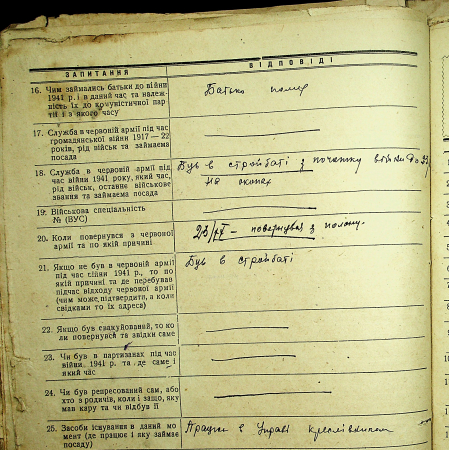 ЗАПИТАННЯ
ВІДПОВІДІ
16. Чим займались батьки до війни
1941 р. і в даний час та належ-
ність їх до комуністичної пар-
тії і з якого часу
Батько помер
17. Служба в червоній армії під час
громадянської війни 1917 — 22
років, рід військ та займаема
посада
18. Служба в червоній армії під
час війни 1941 року, який час,
рід військ, останнє військове
звання та займаема посада
Був в стройбаті з початку війни до
на окопах
19. Військова спеціальність
№ (ВУС)
20. Коли повернувся з червоної
армії та по якій причині
23/ — повернувся з полону.
21. Якщо не був в червоній армії
під час війни 1941 р., то по
якій причині та де перебував
підчас відходу червоної армії
(чим може підтвердити, а коли
свідками то їх адреса)
Був в стройбаті
22. Якщо був евакуйований, то ко-
ли повернувся та звідки саме
23. Чи був в партизанах під час
війни 1941 р. та де саме і
який час
24. Чи був репресований сам, або
хто з родичів, коли і защо, яку
мав кару та чи відбув її
25. Засоби існування в даний мо-
мент (де працює і яку займає
посаду)
Працює в Управі креслівником